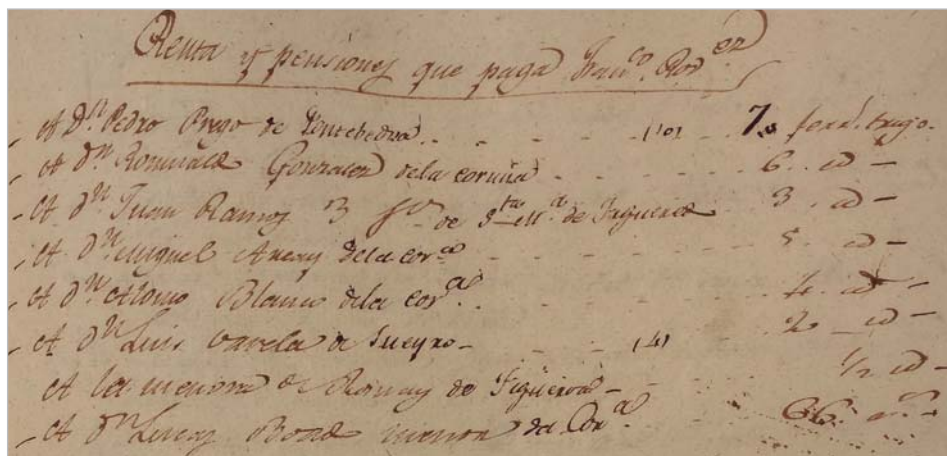 Renta y pensiones que paga Fran.co Rod.ez
A D.n Pedro Prego de Pontebedra 7 ferr. trigo.
A D.n Romualdo Gonzalez dela coruña 6. id
A D.n Juan Ramos 3 f.s de S.ta M.a de Figueroa 3. id
A D.n Miguel dela cor.a 5. id
A D.n Alonso Blanco dela cor.a 4. id
A D.n Luis Varela de Sueyro 2 id
A la menora de de Figueroa 1/2 id
A D.n menor da Cor.a 66.